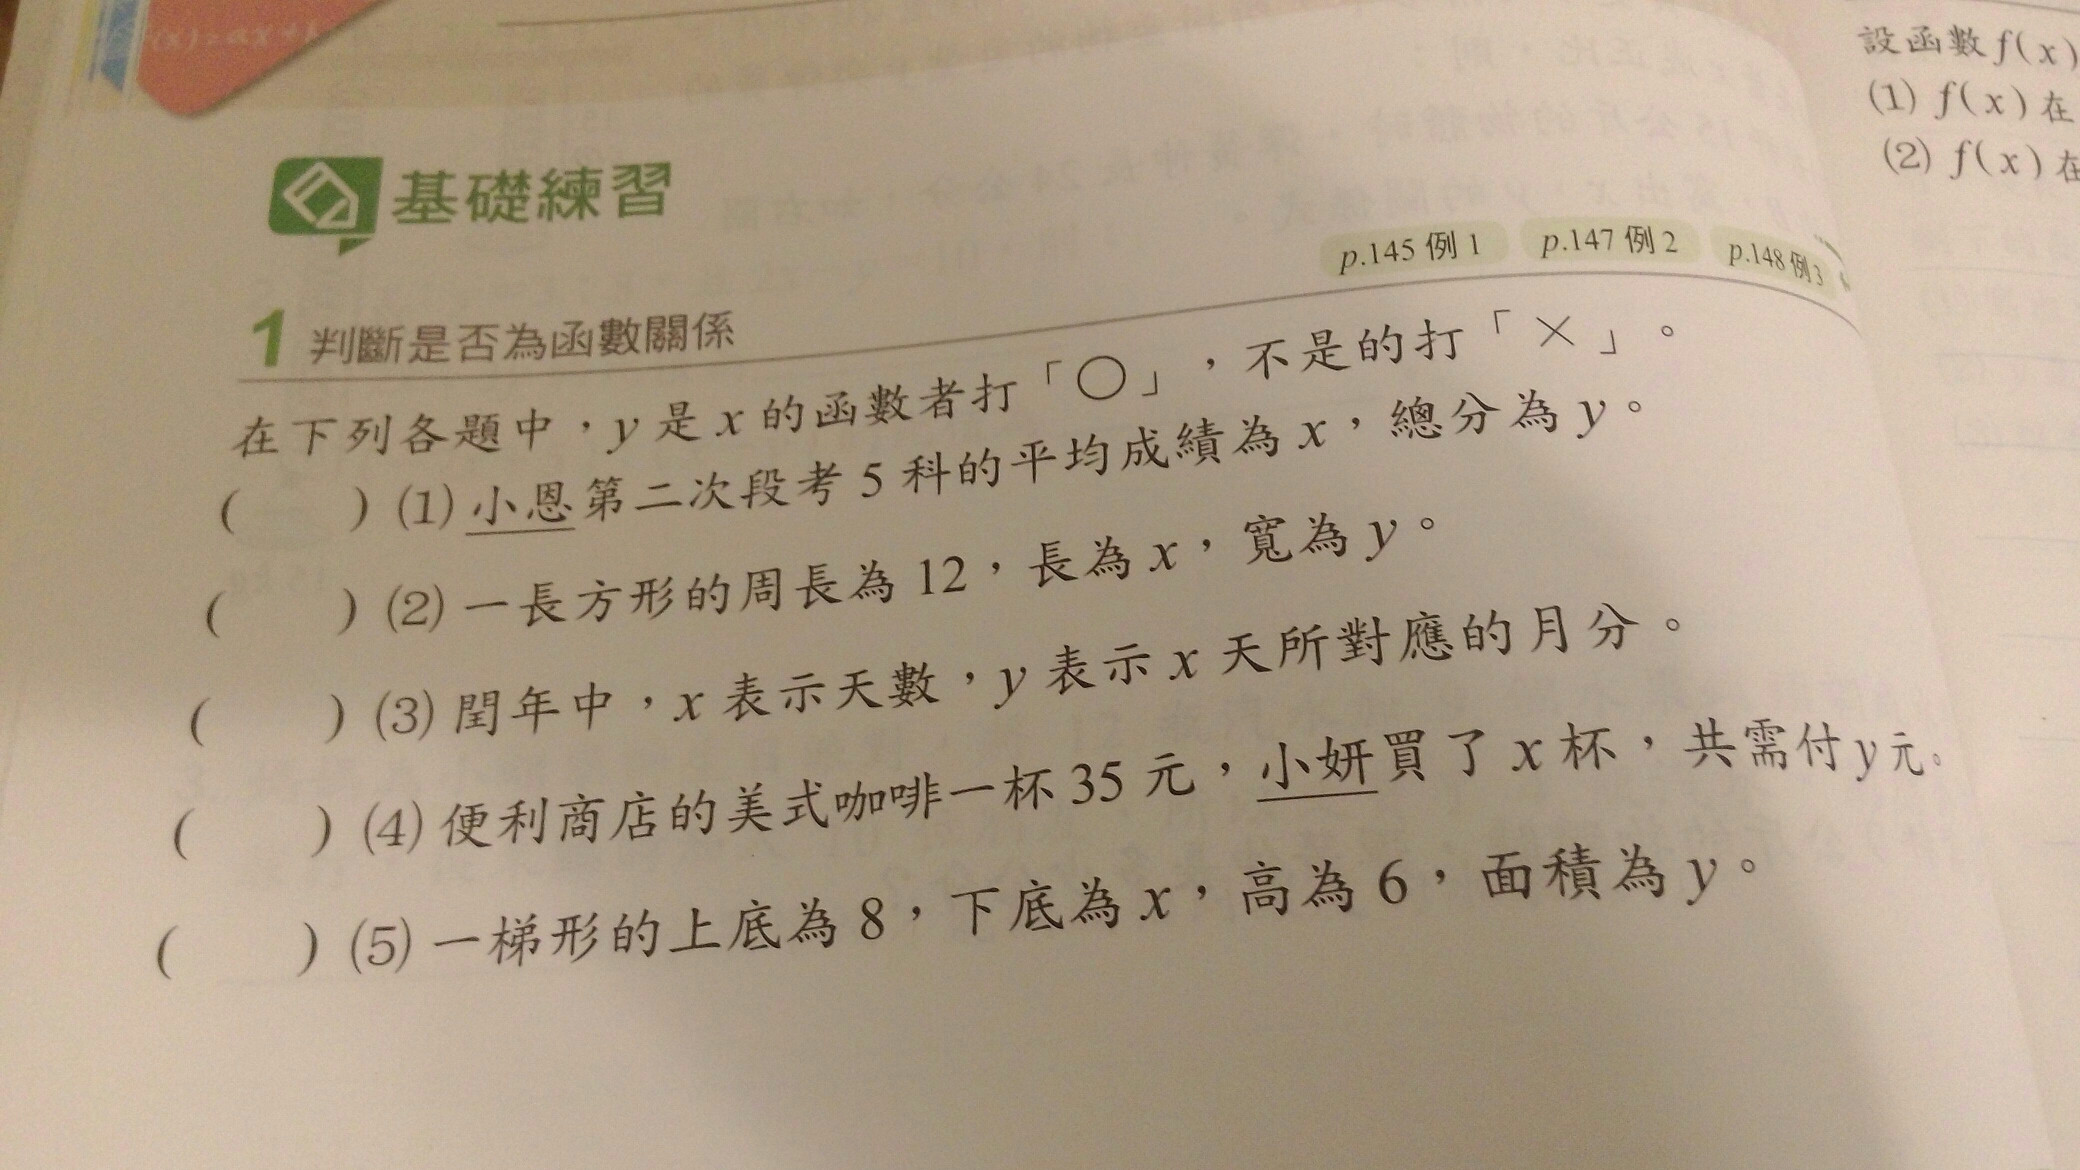 (x)=ax+
基礎練習
p.145 例 1 p.147 例 2 p.148 例 3
1 判斷是否為函數關係
在下列各題中，y 是 x 的函數者打「○」，不是的打「×」。
( ) (1) 小恩第二次段考 5 科的平均成績為 x，總分為 y。
( ) (2) 一長方形的周長為 12，長為 x，寬為 y。
( ) (3) 閏年中，x 表示天數，y 表示 x 天所對應的月分。
( ) (4) 便利商店的美式咖啡一杯 35 元，小妍買了 x 杯，共需付 y 元。
( ) (5) 一梯形的上底為 8，下底為 x，高為 6，面積為 y。
設函數 f(x)
(1) f(x) 在
(2) f(x) 在